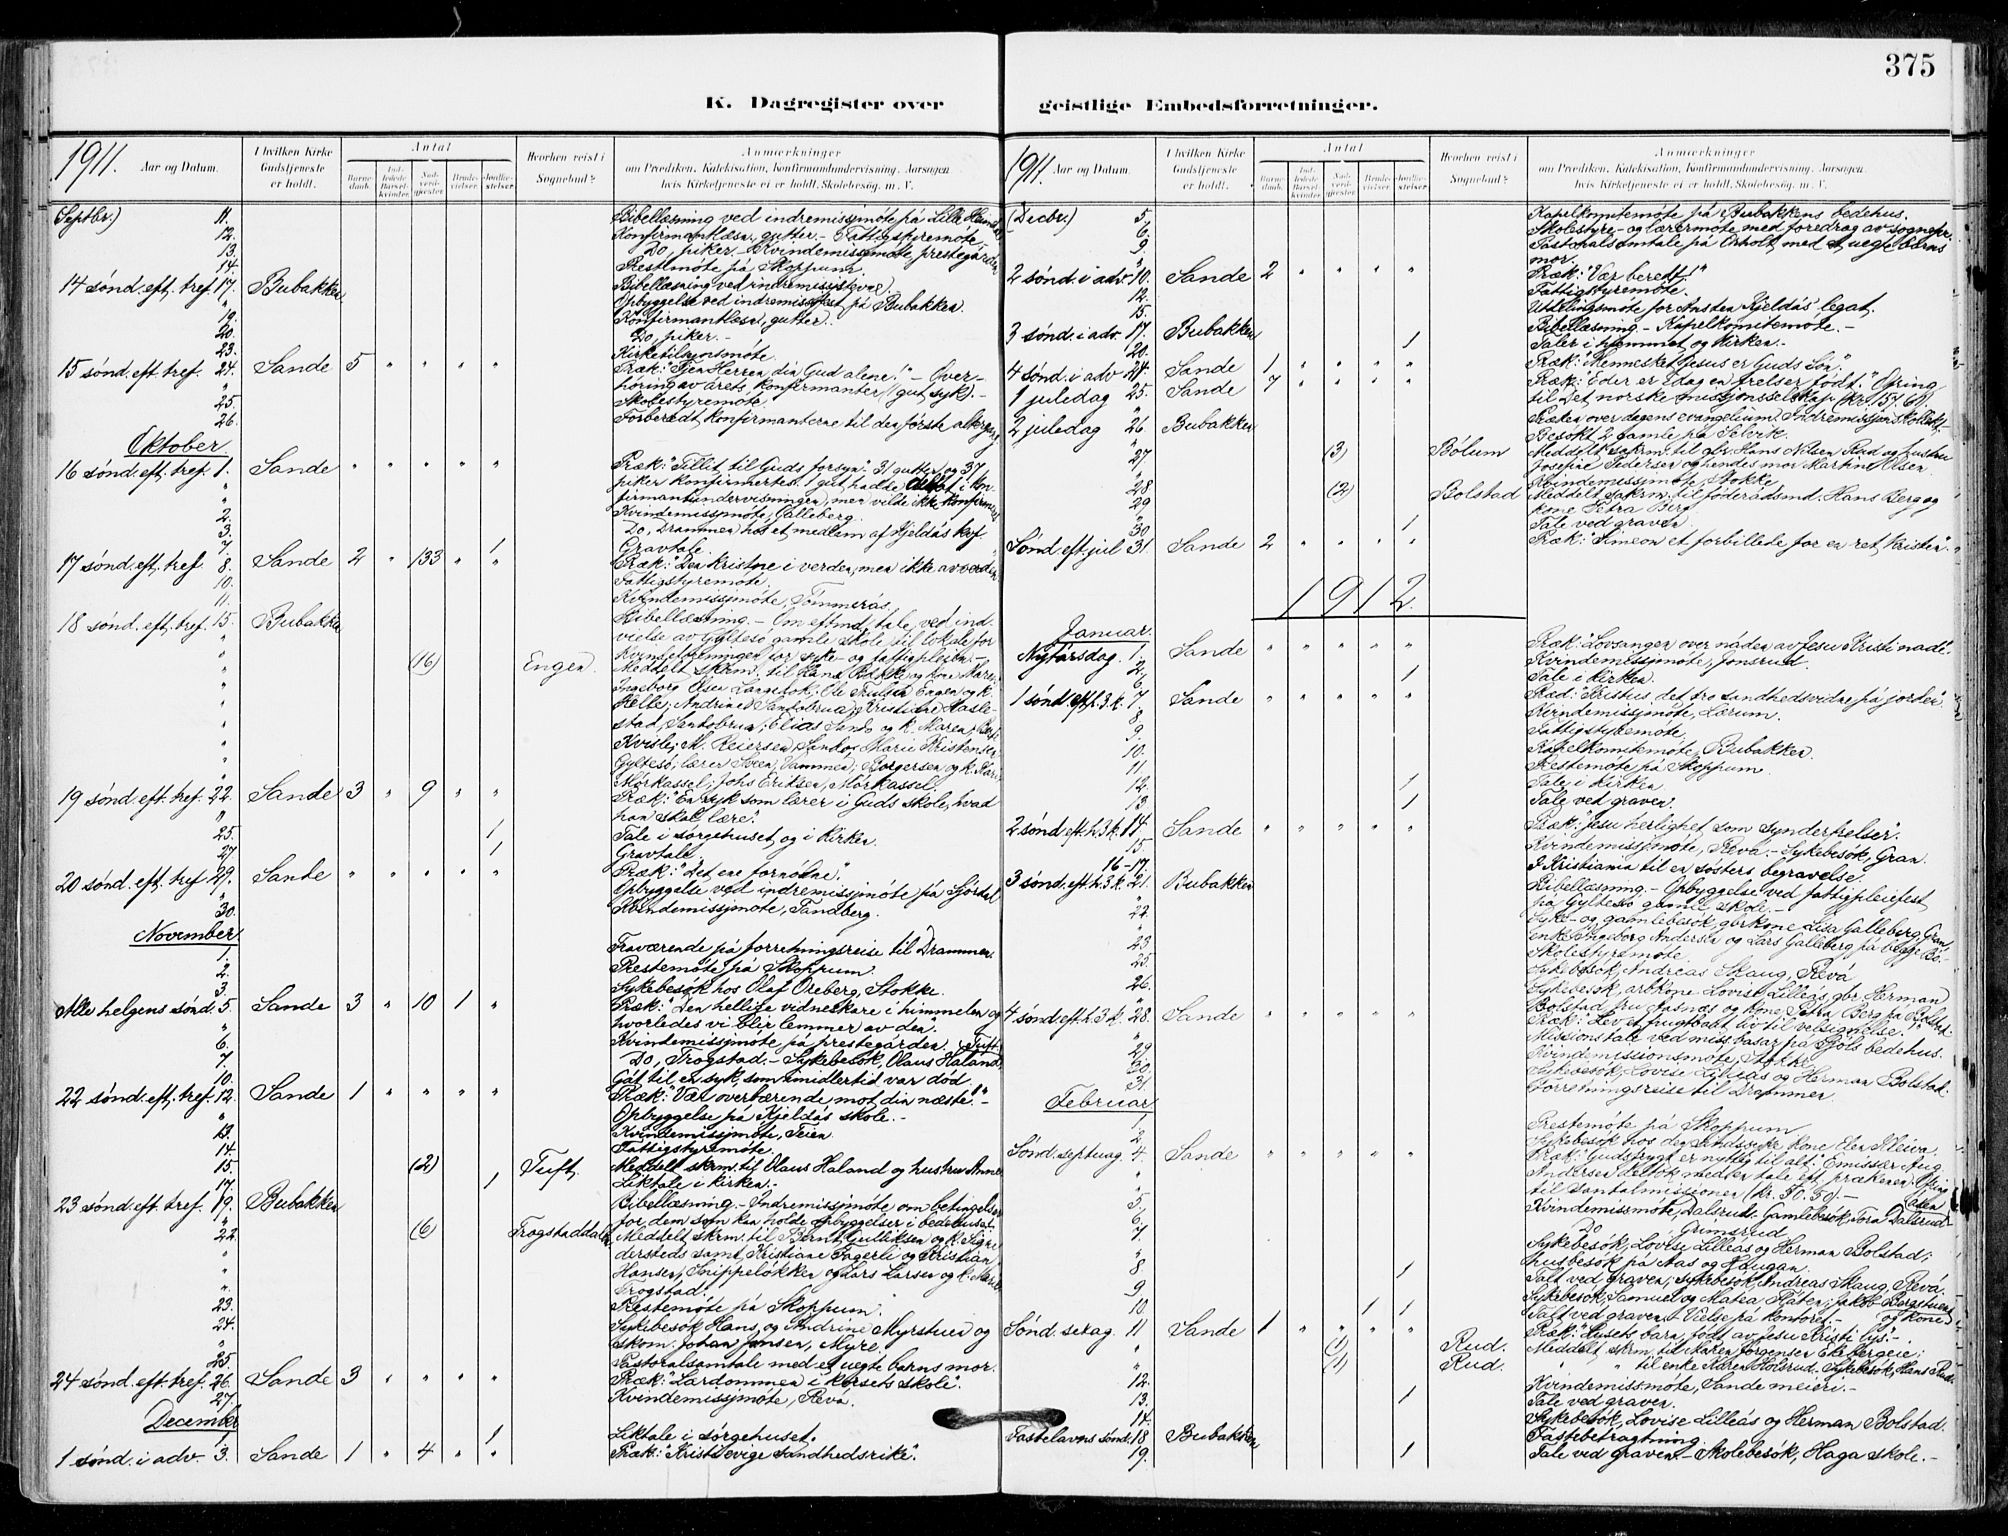 375
K. Dagregister over geistlige Embedsforretninger.
1911. Aar og Datum.
I hvilken Kirke Gudstjeneste er holdt.
Antal
Barnedaab.
Indledede Barselkvinder.
Nadverdgjester.
Brudevielser.
Jordfæstelser.
Hvorhen reist i Sognebud?
Anmerkninger
om Prædiken. Katekisation, Konfirmandundervisning. Aarsagen
hvis Kirketjeneste ei er holdt. Skolebesøg. m. V.
Septbr.) 11. Bibellæsning ved indremissjmöte på Lille
12. Konfirmantlæsn, gutter. - Fattigstyremöte.
13. Do, piker. - Kvindemissjmöte prestegården
14. Prestemöte på Skoppum.
14 sönd. eft. tref. 17. Bubakken Bibellæsning ved
" Opbyggelse ved indremissfest på Bubakken.
19. Konfirmantlæsn, gutter.
20. Do, piker. -
23. Kirketilsynsmöte.
15 sönd. eft. tref. 24. Sande 5 " " " " Præk: "Tjen Herren din Gud alene!" - Over-
" höring av årets konfirmanter (1 gut syk). -
25. Skolestyremöte.
26. Forberedt konfirmanterne til den förste altergang
Oktober
16 sönd. eft. tref. 1. Sande " " " " " Præk: "Tillit til Guds forsyn". 31 gutter og 37
" piker konfirmertes. 1 gut hadde deltat i kon-
" firmantundervisningen, men vilde ikke konfirmeres
2. Kvindemissjmöte, Galleberg.
3. Do, Drammen hos et medlem af Kjeldås kvf.
7. 1 Gravtale.
17 sönd. eft. tref. 8. Sande 2 " 133 " " Præk: "Den kristne i verden, men ikke av verden
10. Fattigstyremöte.
11. Kvindemissjmöte, Tömmerås.
18 sönd. eft. tref. 15. Bubakken Bibellæsning. - Om eftmd, tale ved ind-
" vielse av Gyltesö gamle skole til lokale for
" (16) Engen. Kvindeforeningen for syke- og fattigpleien. -
" Meddelt skrm. til Hans Bakke og kone Maren;
" Ingeborg Olsen Langebok; Ole Trulsen Engen og k.
" Helle; Andrine Sandobrua; Kristiane Hasle-
" stad, Sandobrua; Elias Sando og k. Maren;
" Kvisle; M. Reiersen, Sando; Marie Kristensen
" Gyltesö; lærer Sveen, Vammen; Borgersen og k.
" Mörkassel; Johs Eriksen, Mörkassel.
19 sönd. eft. tref. 22. Sande 3 " 9 " " Præk: "En syk som lærer i Guds skole, hvad
" han skal lære."
25. 1 Tale i sørgehuset og i kirken.
27. 1 Gravtale.
20 sönd. eft. tref. 29. Sande " " " " " Præk: "Det ene fornödne".
" Opbyggelse ved indremissjmöte på
30. Kvindemissjmöte, Tandberg.
November
1. Fraværende på forretningsreise til Drammen.
2. Prestemöte på Skoppum.
3. Sykebesök hos Olaf Öreberg, Stokke.
Alle helgens sönd. 5. Sande 3 " 10 1 " Præk: "Den hellige vidneskare i himmelen og
" hvorledes vi blir lemmer av den".
6. Kvindemissjmöte på prestegården. (Tuft.
7. Do, Trogstad. - Sykebesök, Olaus Haland,
10. Gåt til en syk, som imidlertid var död.
22 sönd. eft. tref. 12. Sande 1 " " " " Præk: "Vær overbærende mot din næste!" -
" Opbyggelse på Kjeldås skole. -
13. Kvindemissjmöte, Teien.
14. Fattigstyremöte.
15. (2) Tuft. Meddelt skrm. til Olaus Haland og hustru Anne
17. 1 Liktale i kirken. -
23 sönd. eft. tref. 19. Bubakken Bibellæsning. - Indremissjmöte om betingelser
" for dem som kan holde opbyggelser i bedehuset.
22. (6) Trogstaddalen Meddelt skrm. til Bernt Gulliksen og k. Signe
" dersteds samt Kristiane Fagerli og Kristian
" Hansen, Snippelökken og Lars Larsen og k.
" Trogstad.
23. Prestemöte på Skoppum.
24. Sykebesök Hans og Andrine Myrstuen og
" skom. Johan Jonsen, Myre.
25. Pastoralsamtale med et uegte barns mor.
24 sönd. eft. tref. 26. Sande 3 " " " " Præk: "Lærdommen i korsets skole".
27. Kvindemissjmöte, Revå.
December
1. 1 Liktale i sørgehuset.
1 sönd. i adv. 3. Sande 1 " 4 " " Præk: "Kristi evige sandhedsrike".
1911. Aar og Datum.
I hvilken Kirke Gudstjeneste er holdt.
Antal
Barnedaab.
Indledede Barselkvinder.
Nadverdgjester.
Brudevielser.
Jordfæstelser.
Hvorhen reist i Sognebud?
Anmerkninger
om Prædiken. Katekisation, Konfirmandundervisning. Aarsagen
hvis Kirketjeneste ei er holdt. Skolebesøg. m. V.
(Decbr.) 5. Kapelkomitemöte på Bubakkens bedehus.
6. Skolestyre- og lærermöte med foredrag av sognepr.
9. Pastoralsamtale på Orholt med et uegte barns
" mor.
2 sönd. i adv. 10. Sande 2 " " " " Præk: "Vær beredt!"
12. Fattigstyremöte.
15. Utdelingsmöte for Ansten Kjeldås' legat.
3 sönd. i adv. 17. Bubakken Bibellæsning. - Kapelkomitemöte. -
20. 1 Taler i hjemmet og kirken. -
4 sönd. i adv 24. Sande 1 " " " " Præk: "Mennesket Jesus er Guds Sön".
1 juledag 25. Sande 7 " " " " Præk: "Eder er idag en frelser födt." Ofring
" til Det norske missjonsselskap (kr. 157,61).
2 juledag 26. Bubakken Præken over dagens evangelium. Indremissjonskollekt.
" Besökt 2 gamle på Selvik.
27. (3) Bolum Meddelt sakrm. til gbr. Hans Nilsen Rud og hustru
" Josefine Pedersen og hendes mor Martine Olsen.
28. Kvindemissjmöte, Stokke.
29. (2) Bolstad Meddelt sakrm. til föderådsmd. Hans Berg og
" kone Petra Berg.
30. 1 Tale ved graven.
Sönd. eft. jul 31. Sande 2 " " " " Præk: "Simeon et forbillede for en ret kristen".
1912.
Januar.
Nyårsdag. 1. Sande " " " " " Præk: "Lovsangen over nåden av Jesu Kristi nåde.
2. Kvindemissjmöte, Jonsrud.
6. 1 Tale i kirken.
1 sönd. eft. h. 3 k. 7. Sande " " " " " Præd: "Kristus det tro sandhedsvidne på jorden".
8. Kvindemissjmöte, Lærum.
9. Fattigstyremöte.
10. Kapelkomitemöte, Bubakken.
11. Prestemöte på Skoppum.
12. 1 Tale i kirken.
13. 1 Tale ved graven.
2 sönd. eft. h. 3 k. 14. Sande " " " " " Præk: "Jesu herlighet som synderfrelser".
15. Kvindemissjmöte, Revå. - Sykebesök, Gran.
16-17. I Kristiania til en søsters begravelse.
3 sönd. eft. h. 3 k. 21. Bubakken Bibellæsning. - Opbyggelse ved fattigpleiefest
" på Gyltesö gamle skole. -
22. Syke- og gamlebesök, gbrkone Lisa Galleberg, Gran,
" enke Ingeborg Andersen og Lars Galleberg på begge
23. Skolestyremöte.
25. Sykebesök, Andreas Skaug, Revå
26. Sykebesök, arbkone Lovise Lilleås, gbr. Herman
" Bolstad, Fruktasnæs og kone, Petra Berg på Bolstad.
4 sönd. eft. h. 3 k. 28. Sande " " " " " Præk: "Lev et frugtbart liv til velsignelse!"
" Missionstale ved missbasar på Fjöls bedehus.
29. Kvindemissionsmöte, Stokke.
30. Sykebesök, Lovise Lilleås og Herman Bolstad.
31. Forretningsreise til Drammen
Februar
1. Prestemöte på Skoppum.
2. Sykebesök hos den sindssyke kone Elen Kleiva.
Sönd. septuag. 4. Sande " " " " " Præk: "Gudsfrygt er nyttig til alt." Emissær Aug.
" Andersen, Selvik medvar tale eft. prækenen. Ofring
" til Santalmissionen (kr. 50.50). -
5. Kvindemissmöte, Dalsrud. Gamlebesök, Tora Dalsrud
6. Do Grimsrud
7. Sykebesök, Lovise Lilleås og Herman Bolstad;
" husbesök på Aas og Haugan.
8. 1 Talt ved graven; sykebesök, Andreas Skaug, Revå.
9. Sykebesök, Samuel og Matea Råten; Jakob Borgstuen
10. 1 1 Talt ved graven. - Vielse på kontoret. - og kone)
Sönd. sexag. 11. Sande 1 " " " " Præk: "Lysets barn, födt av Jesu Kristi lys." -
" (1) Rud. Meddelt skrm. til Maren Jörgensen Ekebergeie;
" (1) Rud. " " til enke Karen Holsrud. Sykebesök, Hans Rud.
12. Kvindemissmöte, Sande meieri. -
13. 1 Tale ved graven.
14. Sykebesök, Lovise Lilleås og Herman Bolstad.
Fastelavns sönd. 18. Bubakken Fastebetragtning.
19. 1 Tale ved graven. - Skolebesök, Haga skole. -